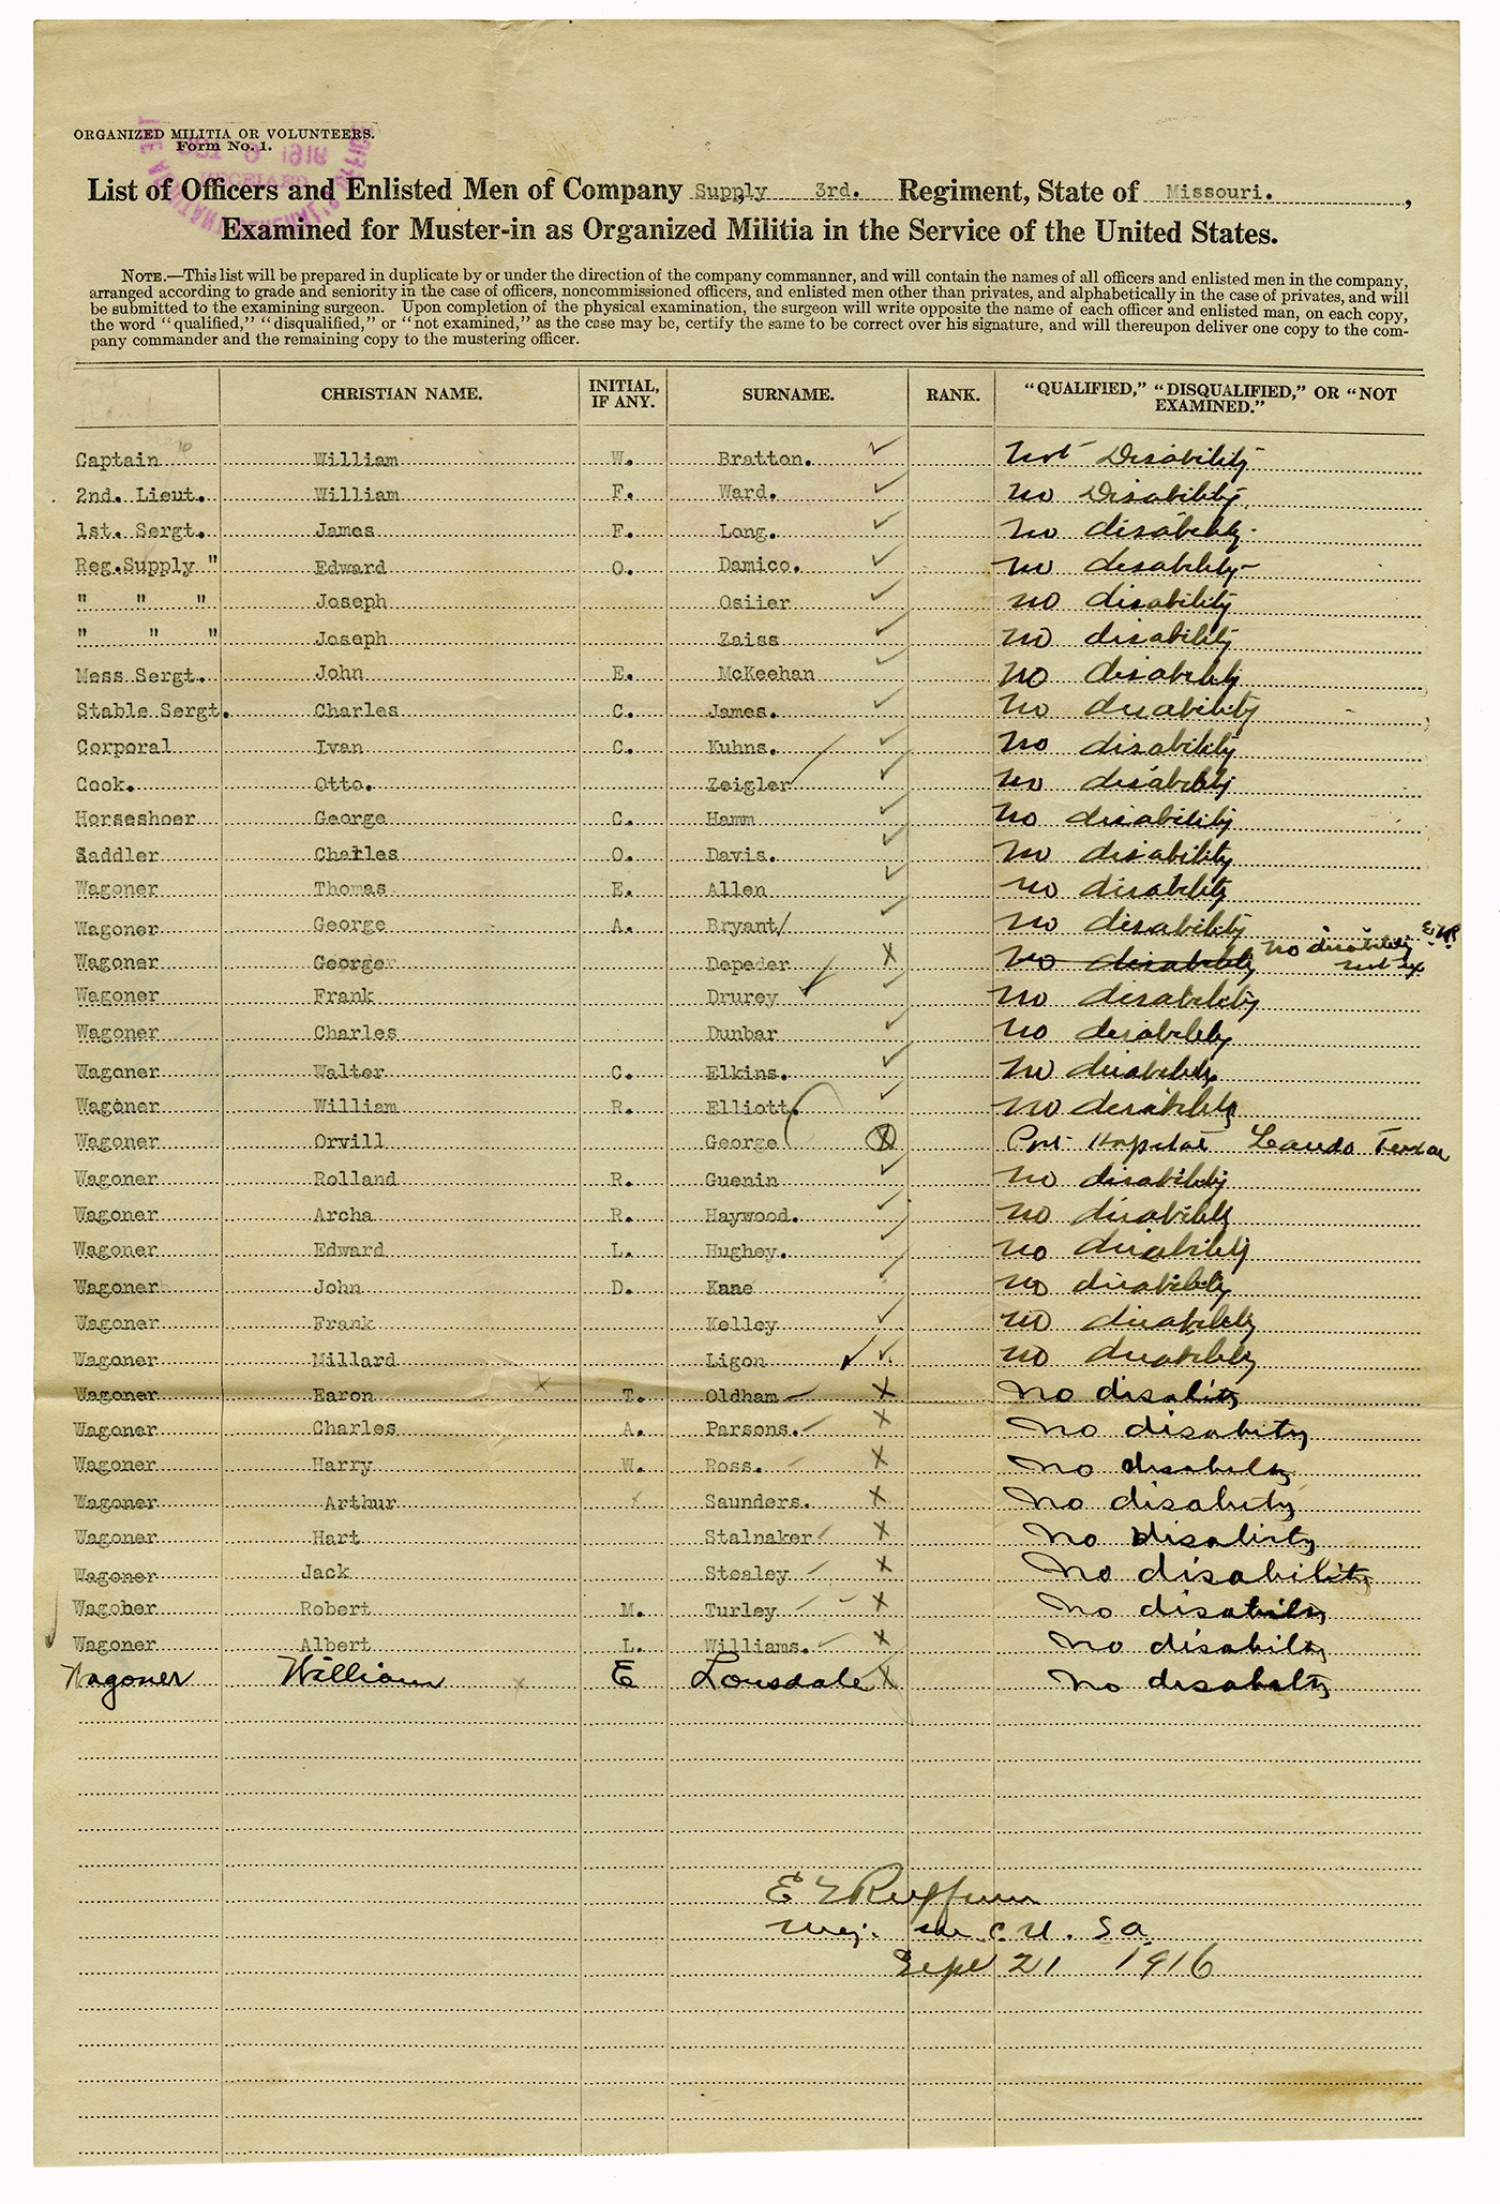 ORGANIZED MILITIA OR VOLUNTEERS.
Form No. 1.
List of Officers and Enlisted Men of Company Supply 3rd. Regiment, State of Missouri.,
Examined for Muster-in as Organized Militia in the Service of the United States.
NOTE.—This list will be prepared in duplicate by or under the direction of the company commanner, and will contain the names of all officers and enlisted men in the company,
arranged according to grade and seniority in the case of officers, noncommissioned officers, and enlisted men other than privates, and alphabetically in the case of privates, and will
be submitted to the examining surgeon. Upon completion of the physical examination, the surgeon will write opposite the name of each officer and enlisted man, on each copy,
the word "qualified," "disqualified," or "not examined," as the case may be, certify the same to be correct over his signature, and will thereupon deliver one copy to the com-
pany commander and the remaining copy to the mustering officer.
CHRISTIAN NAME. INITIAL, IF ANY. SURNAME. RANK. "QUALIFIED," "DISQUALIFIED," OR "NOT EXAMINED."
Captain William W. Bratton. Not Disability
2nd. Lieut. William F. Ward. no Disability
1st. Sergt. James F. Long. no disability
Reg.Supply " Edward O. Damico. no disability
" " " Joseph Osiier no disability
" " " Joseph Zaiss no disability
Mess Sergt. John E. McKeehan no disability
Stable Sergt. Charles C. James. no disability
Corporal Ivan C. Kuhns. no disability
Cook. Otto. Zeigler no disability
Horseshoer George C. Hamm no disability
Saddler Charles O. Davis. no disability
Wagoner Thomas E. Allen no disability
Wagoner George A. Bryant no disability
Wagoner George Depeder no disability no disability not ex
Wagoner Frank Drurey no disability
Wagoner Charles Dunbar no disability
Wagoner Walter C. Elkins. no disability
Wagoner William R. Elliott. no disability
Wagoner Orvill George Hospital Texas
Wagoner Rolland R. Guenin no disability
Wagoner Archa R. Haywood. no disability
Wagoner Edward L. Hughey. no disability
Wagoner John D. Kane no disability
Wagoner Frank Kelley no disability
Wagoner Millard Ligon no disability
Wagoner Earon T. Oldham No disability
Wagoner Charles A. Parsons. No disability
Wagoner Harry W. Ross. No disability
Wagoner Arthur Saunders. No disability
Wagoner Hart Stalnaker No disability
Wagoner Jack Stealey No disability
Wagoner Robert M. Turley No disability
Wagoner Albert L. Williams. No disability
Wagoner William E Lonsdale No disability
Maj. M.C. U.S.A.
Sept 21 1916